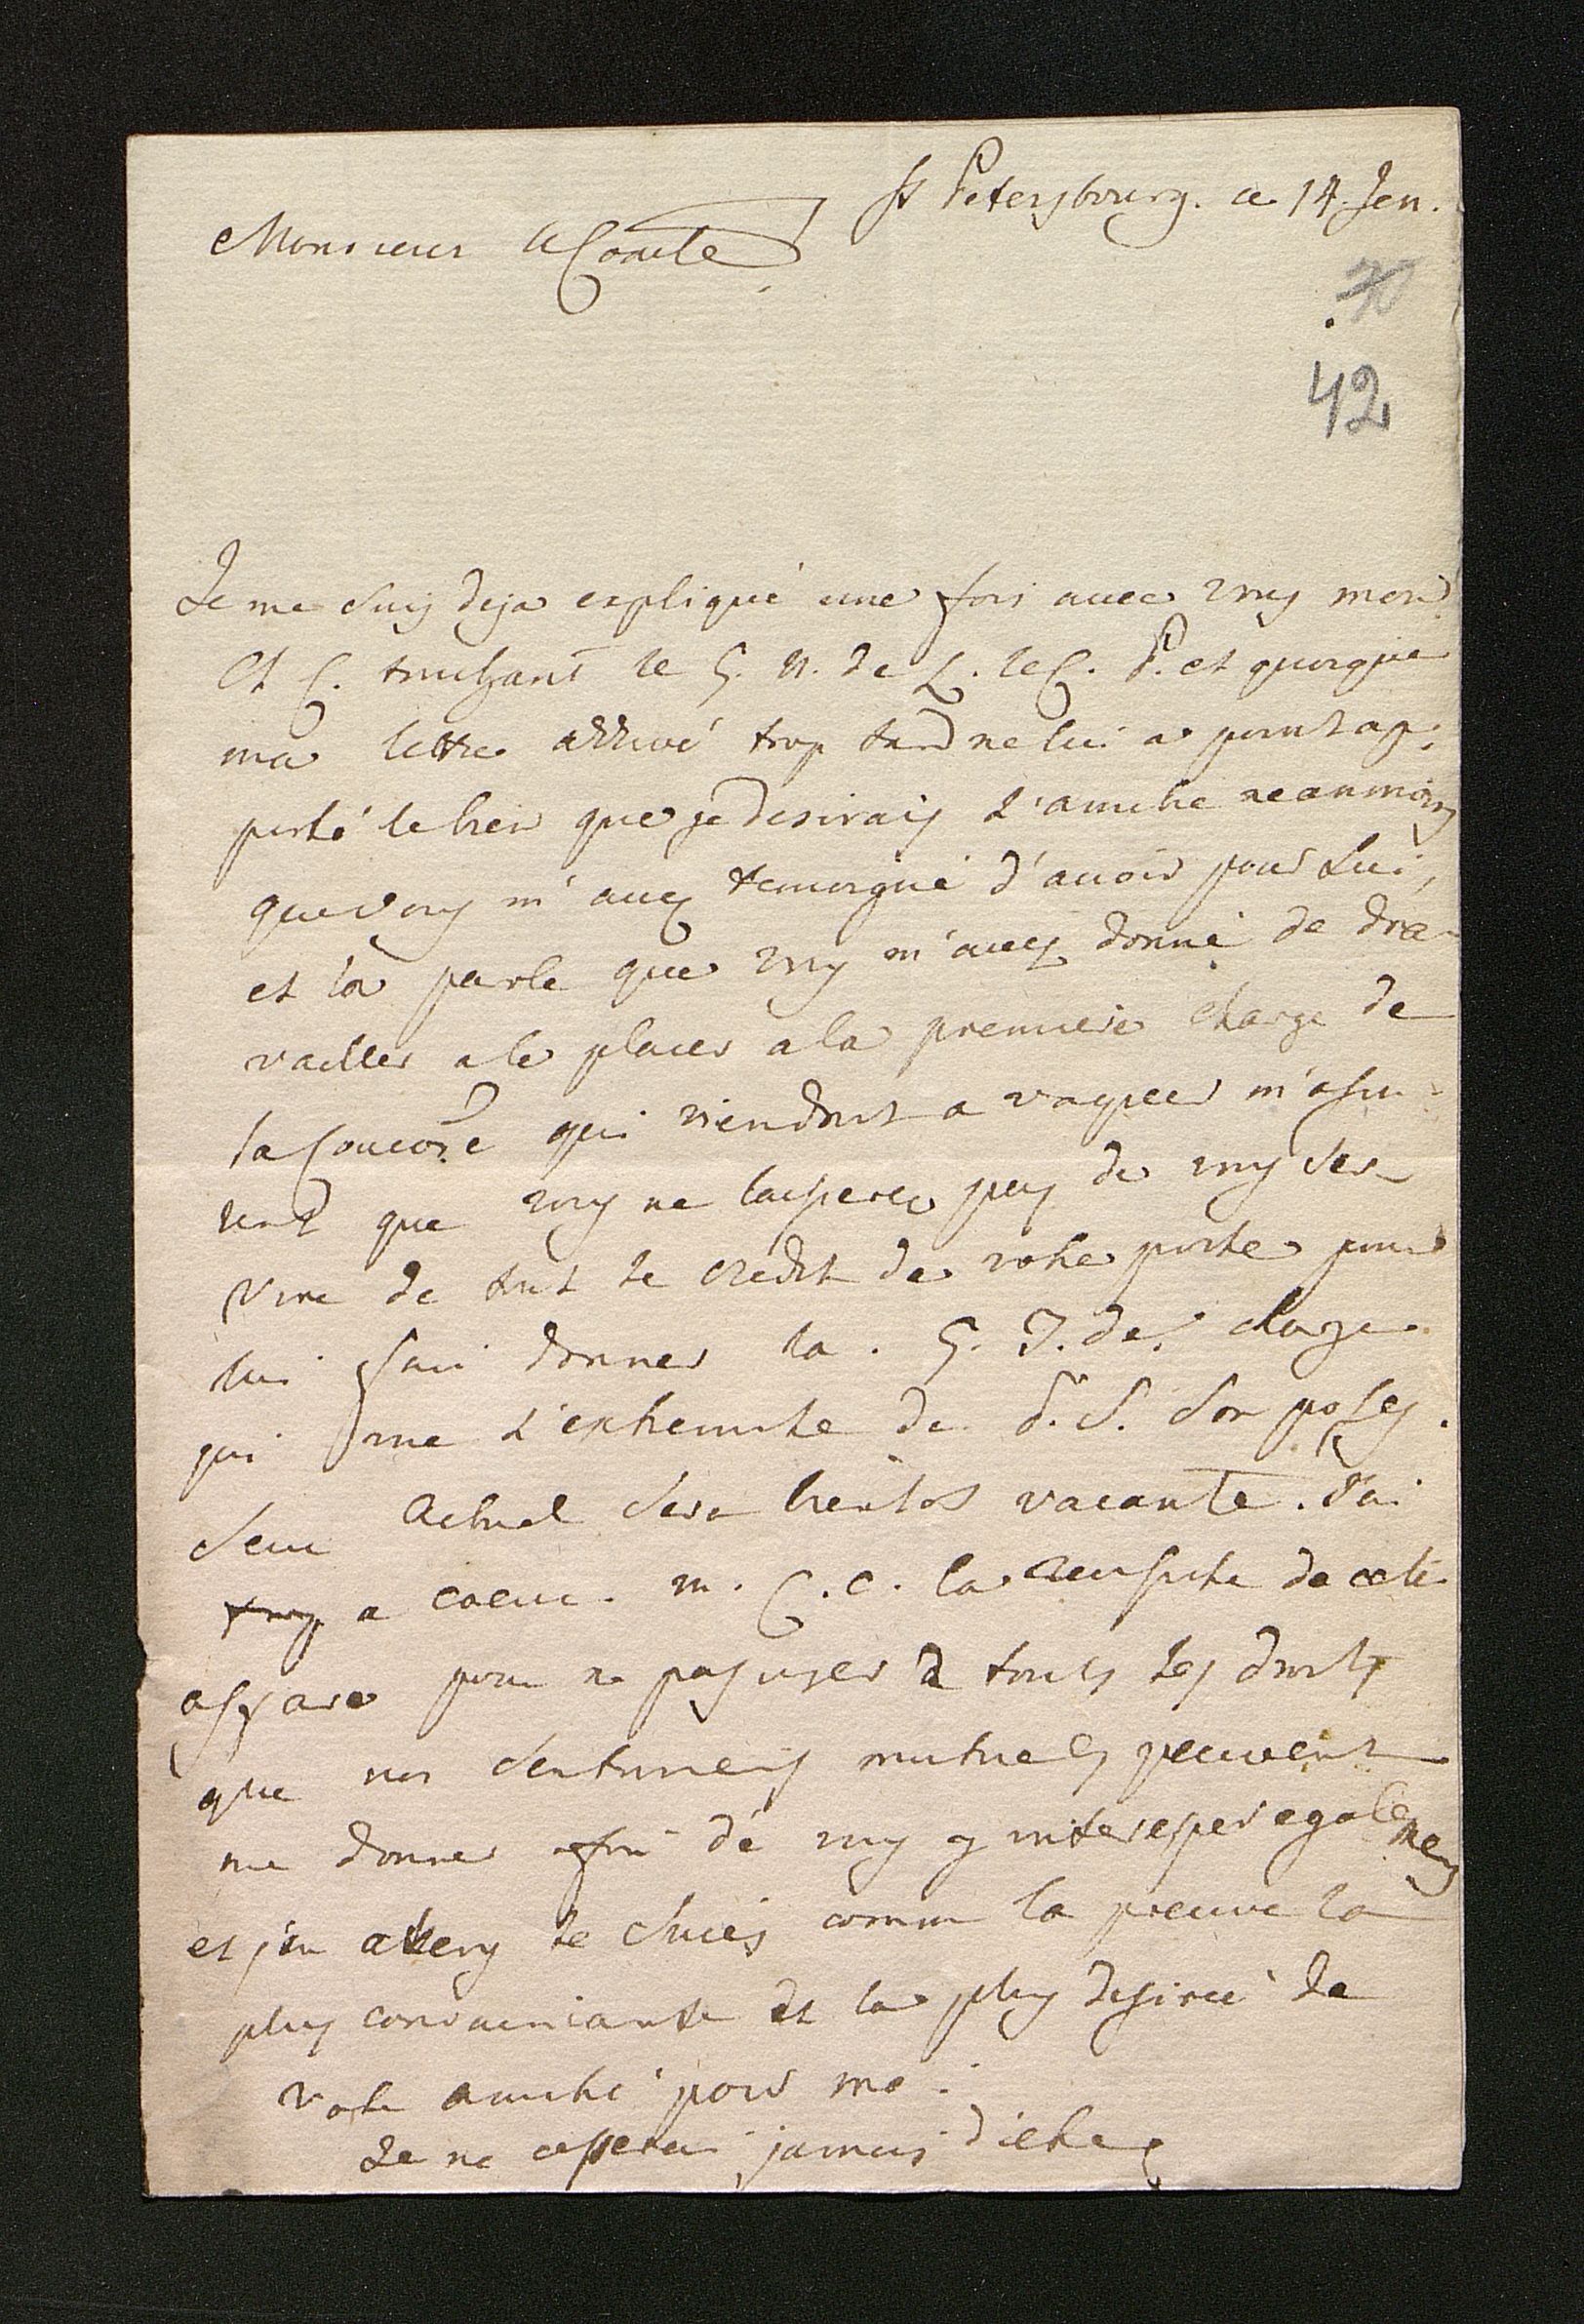 St Petersbourg. ce 14. Jen.
Monsieur le Comte
42
Je me suis deja expliqué une fois avec vous mon
Ch C. touchant le G. N. de L. le C. P. et quoique
ma lettre arrivé trop tard ne lui a point ap¬
porté le bien que je desirais l'amitie neanmoins
que vous m'avez temoigné d'avoir pour lui,
et la parole que vous m'avez donné de tra¬
vailler a le placer a la premiere charge de
la Couronne qui viendroit a vaquer m'assu¬
rent que vous ne laisserez pas de vous ser¬
vire de tout le credit de votre poste pour
lui faire donner la. G. J. de. charge
qui vue l'extremite de P. S. Son posses.
seur actuel sera bientot vacante. J'ai
a coeur. m. C. C. la reussite de cete
affaire pour ne pas user de touts les droits
que nos sentimens mutuels peuvent
me donner afin de vous y interesser egalemens
et j'en attens le succés comme la preuve la
plus convainciante et la plus desirée de
votre amitié pour moi.
Je ne cesserai jamais d'etre